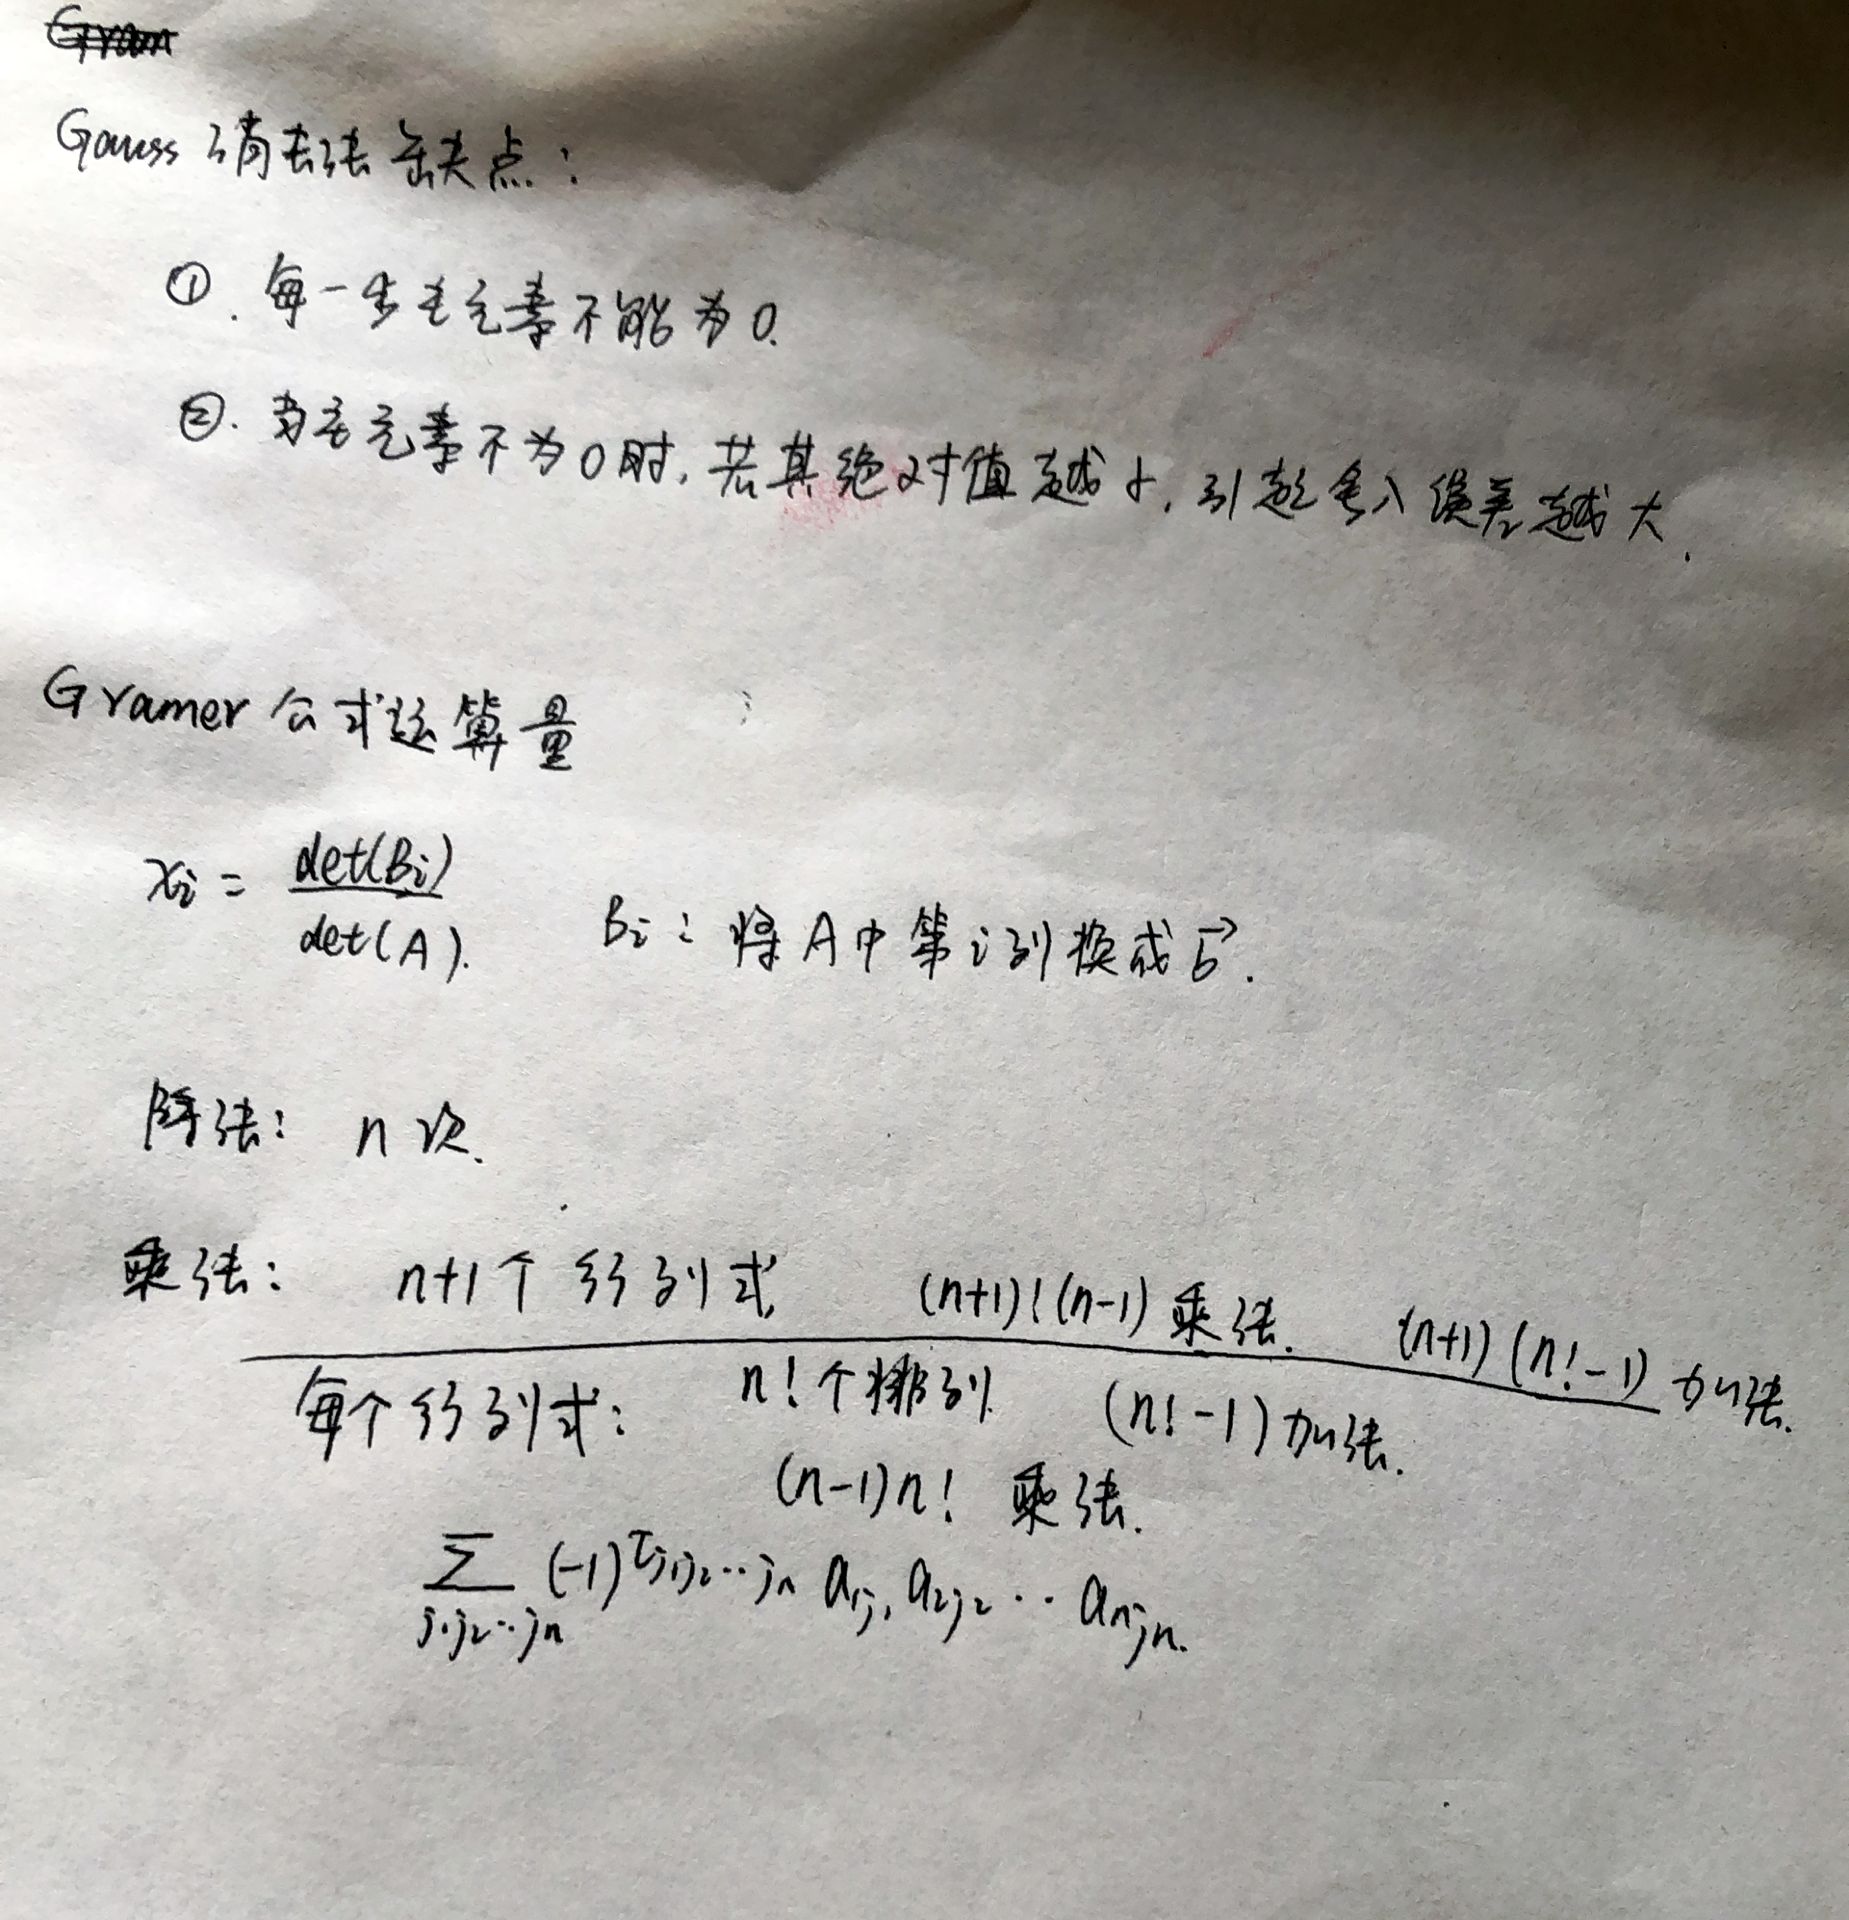 Gram
Gauss 消去法缺点:
①. 每一步主元素不能为0.
②. 当主元素不为0时, 若其绝对值越小, 引起舍入误差越大.
Gramer 公式运算量
xᵢ = det(Bᵢ) / det(A). Bᵢ: 将A中第i列换成b⃗.
除法: n次.
乘法: n+1个行列式 (n+1)!(n-1)乘法. (n+1)(n!-1)加法.
每个行列式: n!个排列 (n!-1)加法.
(n-1)n! 乘法.
∑_{j₁j₂…jₙ} (-1)^{τj₁j₂…jₙ} a₁j₁ a₂j₂ … aₙjₙ.